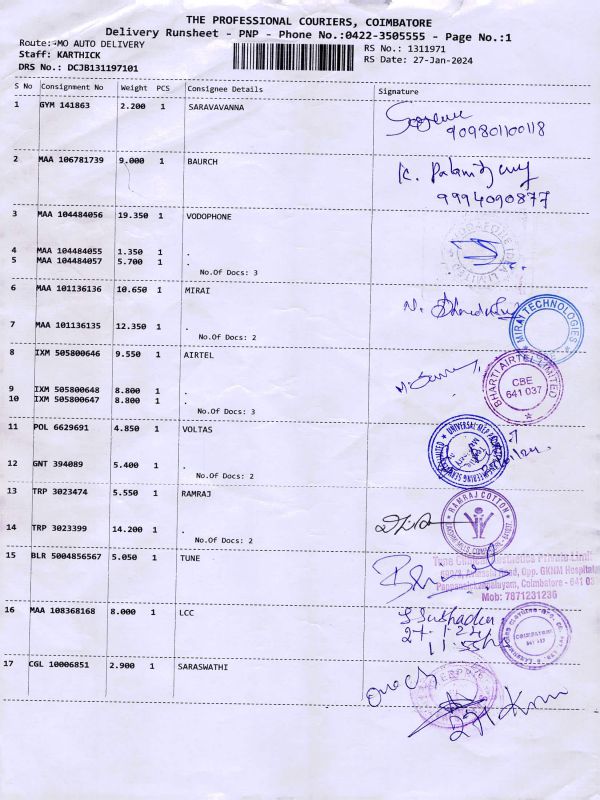 THE PROFESSIONAL COURIERS, COIMBATORE
Delivery Runsheet - PNP - Phone No.:0422-3505555 - Page No.:1
Route:-MO AUTO DELIVERY RS No.: 1311971
Staff: KARTHICK RS Date: 27-Jan-2024
DRS No.: DCJB131197101
S No Consignment No Weight PCS Consignee Details Signature
1 GYM 141863 2.200 1 SARAVAVANNA
909801100118
2 MAA 106781739 9.000 1 BAURCH
9994090877
3 MAA 104484056 19.350 1 VODOPHONE
4 MAA 104484055 1.350 1 .
5 MAA 104484057 5.700 1 .
No.Of Docs: 3
6 MAA 101136136 10.650 1 MIRAI
MIRAI TECHNOLOGIES
7 MAA 101136135 12.350 1 .
No.Of Docs: 2
8 IXM 505800646 9.550 1 AIRTEL
BHARTI AIRTEL LIMITED
CBE
641 037
9 IXM 505800648 8.800 1 .
10 IXM 505800647 8.800 1 .
No.Of Docs: 3
11 POL 6629691 4.850 1 VOLTAS
12 GNT 394089 5.400 1 .
No.Of Docs: 2
13 TRP 3023474 5.550 1 RAMRAJ
RAMRAJ COTTON
14 TRP 3023399 14.200 1 .
No.Of Docs: 2
15 BLR 5004856567 5.050 1 TUNE
Opp. GKNM Hospital
Coimbatore - 641 03
Mob: 7871231236
16 MAA 108368168 8.000 1 LCC
27.1.24
COIMBATORE
17 CGL 10006851 2.900 1 SARASWATHI